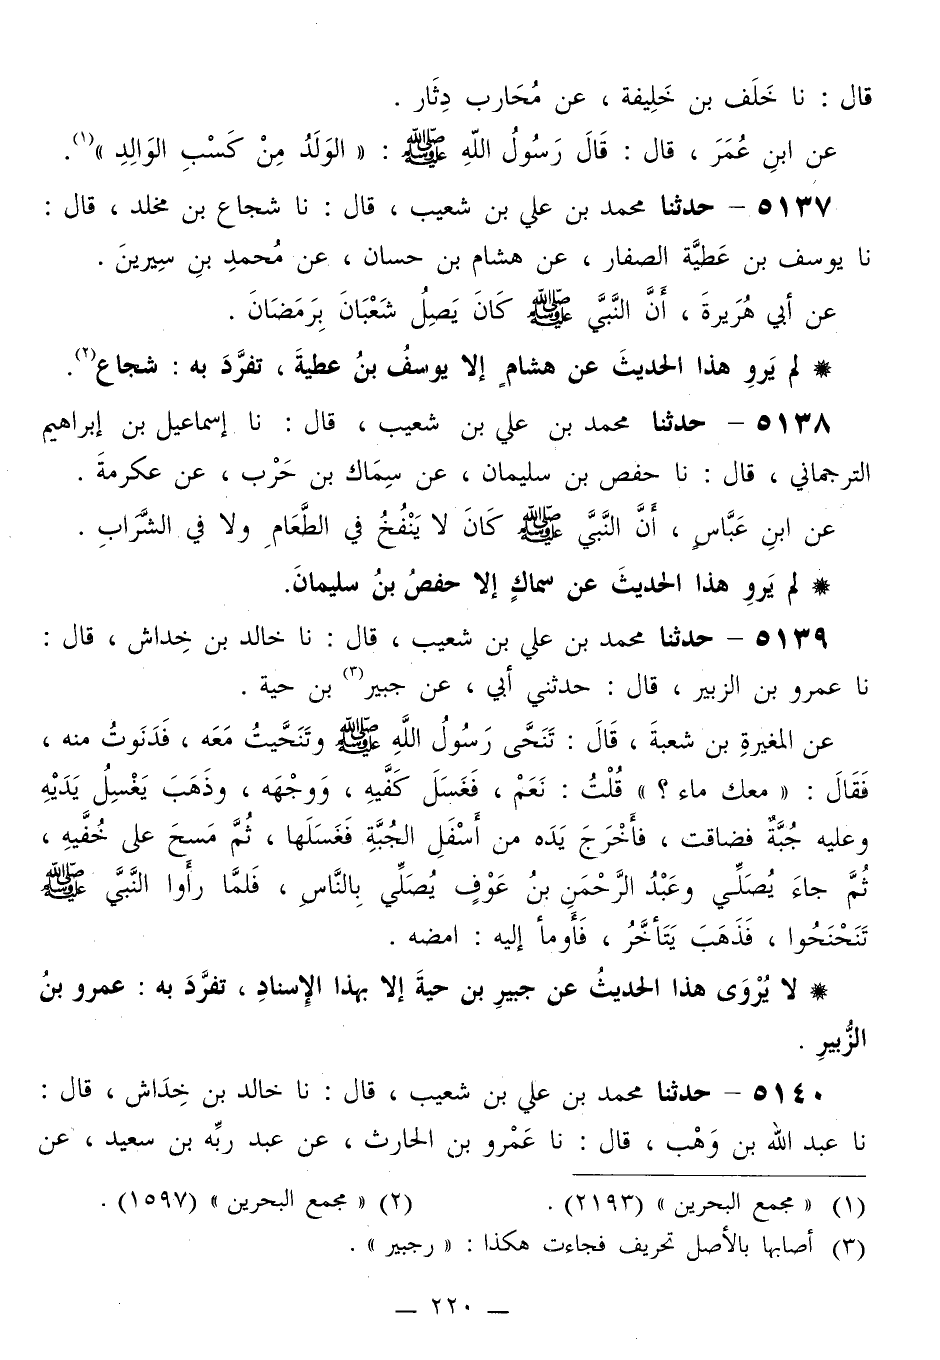 قال : نا خَلَف بن خَلِيفة ، عن مُحَارب دِثَار .
عن ابنِ عُمَرَ ، قال : قَالَ رَسُولُ اللهِ ﷺ : « الوَلَدُ مِنْ كَسْبِ الوَالِدِ »(١).
٥١٣٧ – حدثنا محمد بن علي بن شعيب ، قال : نا شجاع بن مخلد ، قال :
نا يوسف بن عَطيَّة الصفار ، عن هشام بن حسان ، عن مُحمدِ بنِ سِيرينَ .
عن أبي هُرَيرةَ ، أَنَّ النَّبيَّ ﷺ كَانَ يَصِلُ شَعْبَانَ بِرَمَضَانَ .
* لم يَروِ هذا الحديثَ عن هشامٍ إلا يوسفُ بنُ عطيةَ ، تفرَّدَ به : شجاع(٢).
٥١٣٨ – حدثنا محمد بن علي بن شعيب ، قال : نا إسماعيل بن إبراهيم
الترجماني ، قال : نا حفص بن سليمان ، عن سِمَاك بن حَرْب ، عن عكرمةَ .
عن ابنِ عَبَّاسٍ ، أَنَّ النَّبيَّ ﷺ كَانَ لا يَنْفُخُ في الطَّعَامِ ولا في الشَّرَابِ .
* لم يَروِ هذا الحديثَ عن سماكٍ إلا حفصُ بنُ سليمانَ.
٥١٣٩ – حدثنا محمد بن علي بن شعيب ، قال : نا خالد بن خِداش ، قال :
نا عمرو بن الزبير ، قال : حدثني أبي ، عن جبير(٣) بن حية .
عن المغيرةِ بن شعبةَ ، قَالَ : تَنَحَّى رَسُولُ اللهِ ﷺ وتَنَحَّيتُ مَعَه ، فَدَنَوتُ منه ،
فَقَالَ : « معك ماء ؟ » قُلْتُ : نَعَمْ ، فَغَسَلَ كَفَّيهِ ، وَوجْهَه ، وذَهَبَ يَغْسِلُ يَدَيْهِ
وعليه جُبَّةٌ فضاقت ، فأَخْرَجَ يَدَه من أَسْفَلِ الجُبَّةِ فَغَسَلَها ، ثُمَّ مَسحَ على خُفَّيهِ ،
ثُمَّ جاءَ يُصَلِّي وعَبْدُ الرَّحْمَنِ بنُ عَوْفٍ يُصَلِّي بِالنَّاسِ ، فَلمَّا رأَوا النَّبيَّ ﷺ
تَنَحْنَحُوا ، فَذَهَبَ يَتَأخَّرُ ، فَأَومأ إليه : امضه .
* لا يُرْوَى هذا الحديثُ عن جبيرِ بن حيةَ إلا بهذا الإِسنادِ ، تفرَّدَ به : عمرو بنُ
الزُّبيرِ .
٥١٤٠ – حدثنا محمد بن علي بن شعيب ، قال : نا خالد بن خِدَاش ، قال :
نا عبد الله بن وَهْب ، قال : نا عَمْرو بن الحارث ، عن عبد ربِّه بن سعيد ، عن
(١) « مجمع البحرين » (٢١٩٣) . (٢) « مجمع البحرين » (١٥٩٧) .
(٣) أصابها بالأصل تحريف فجاءت هكذا : « رجبير » .
— ٢٢٠ —